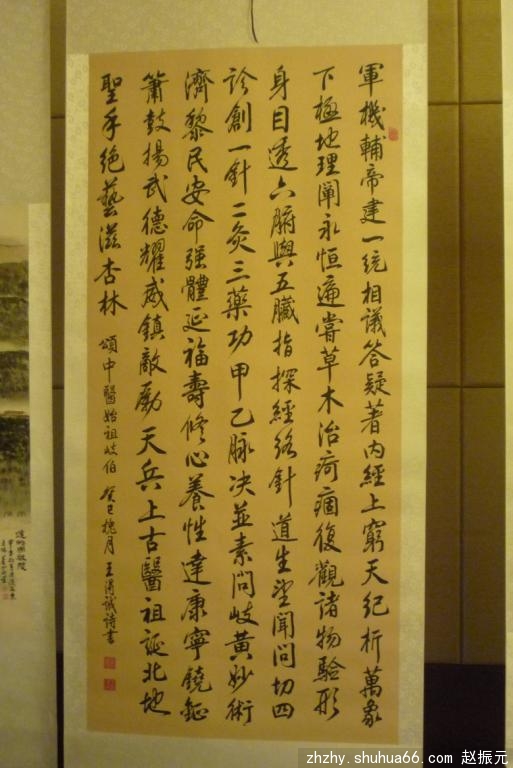 軍機輔帝建一統相議答疑著內經上窮天紀析萬象
下極地理闡永恒遍嘗草木治疴痼復觀諸物驗形
身目透六腑與五臟指探經絡針道生望聞問切四
診創一針二灸三藥功甲乙脉决並素問岐黃妙術
濟黎民安命强體延福壽修心養性達康寧鐃鉦
簫鼓揚武德耀威鎮敵勵天兵上古醫祖誕北地
聖手絕藝滋杏林 頌中醫始祖岐伯 癸巳槐月 王 誠詩書
zhzhy.shuhua66.com 赵振元